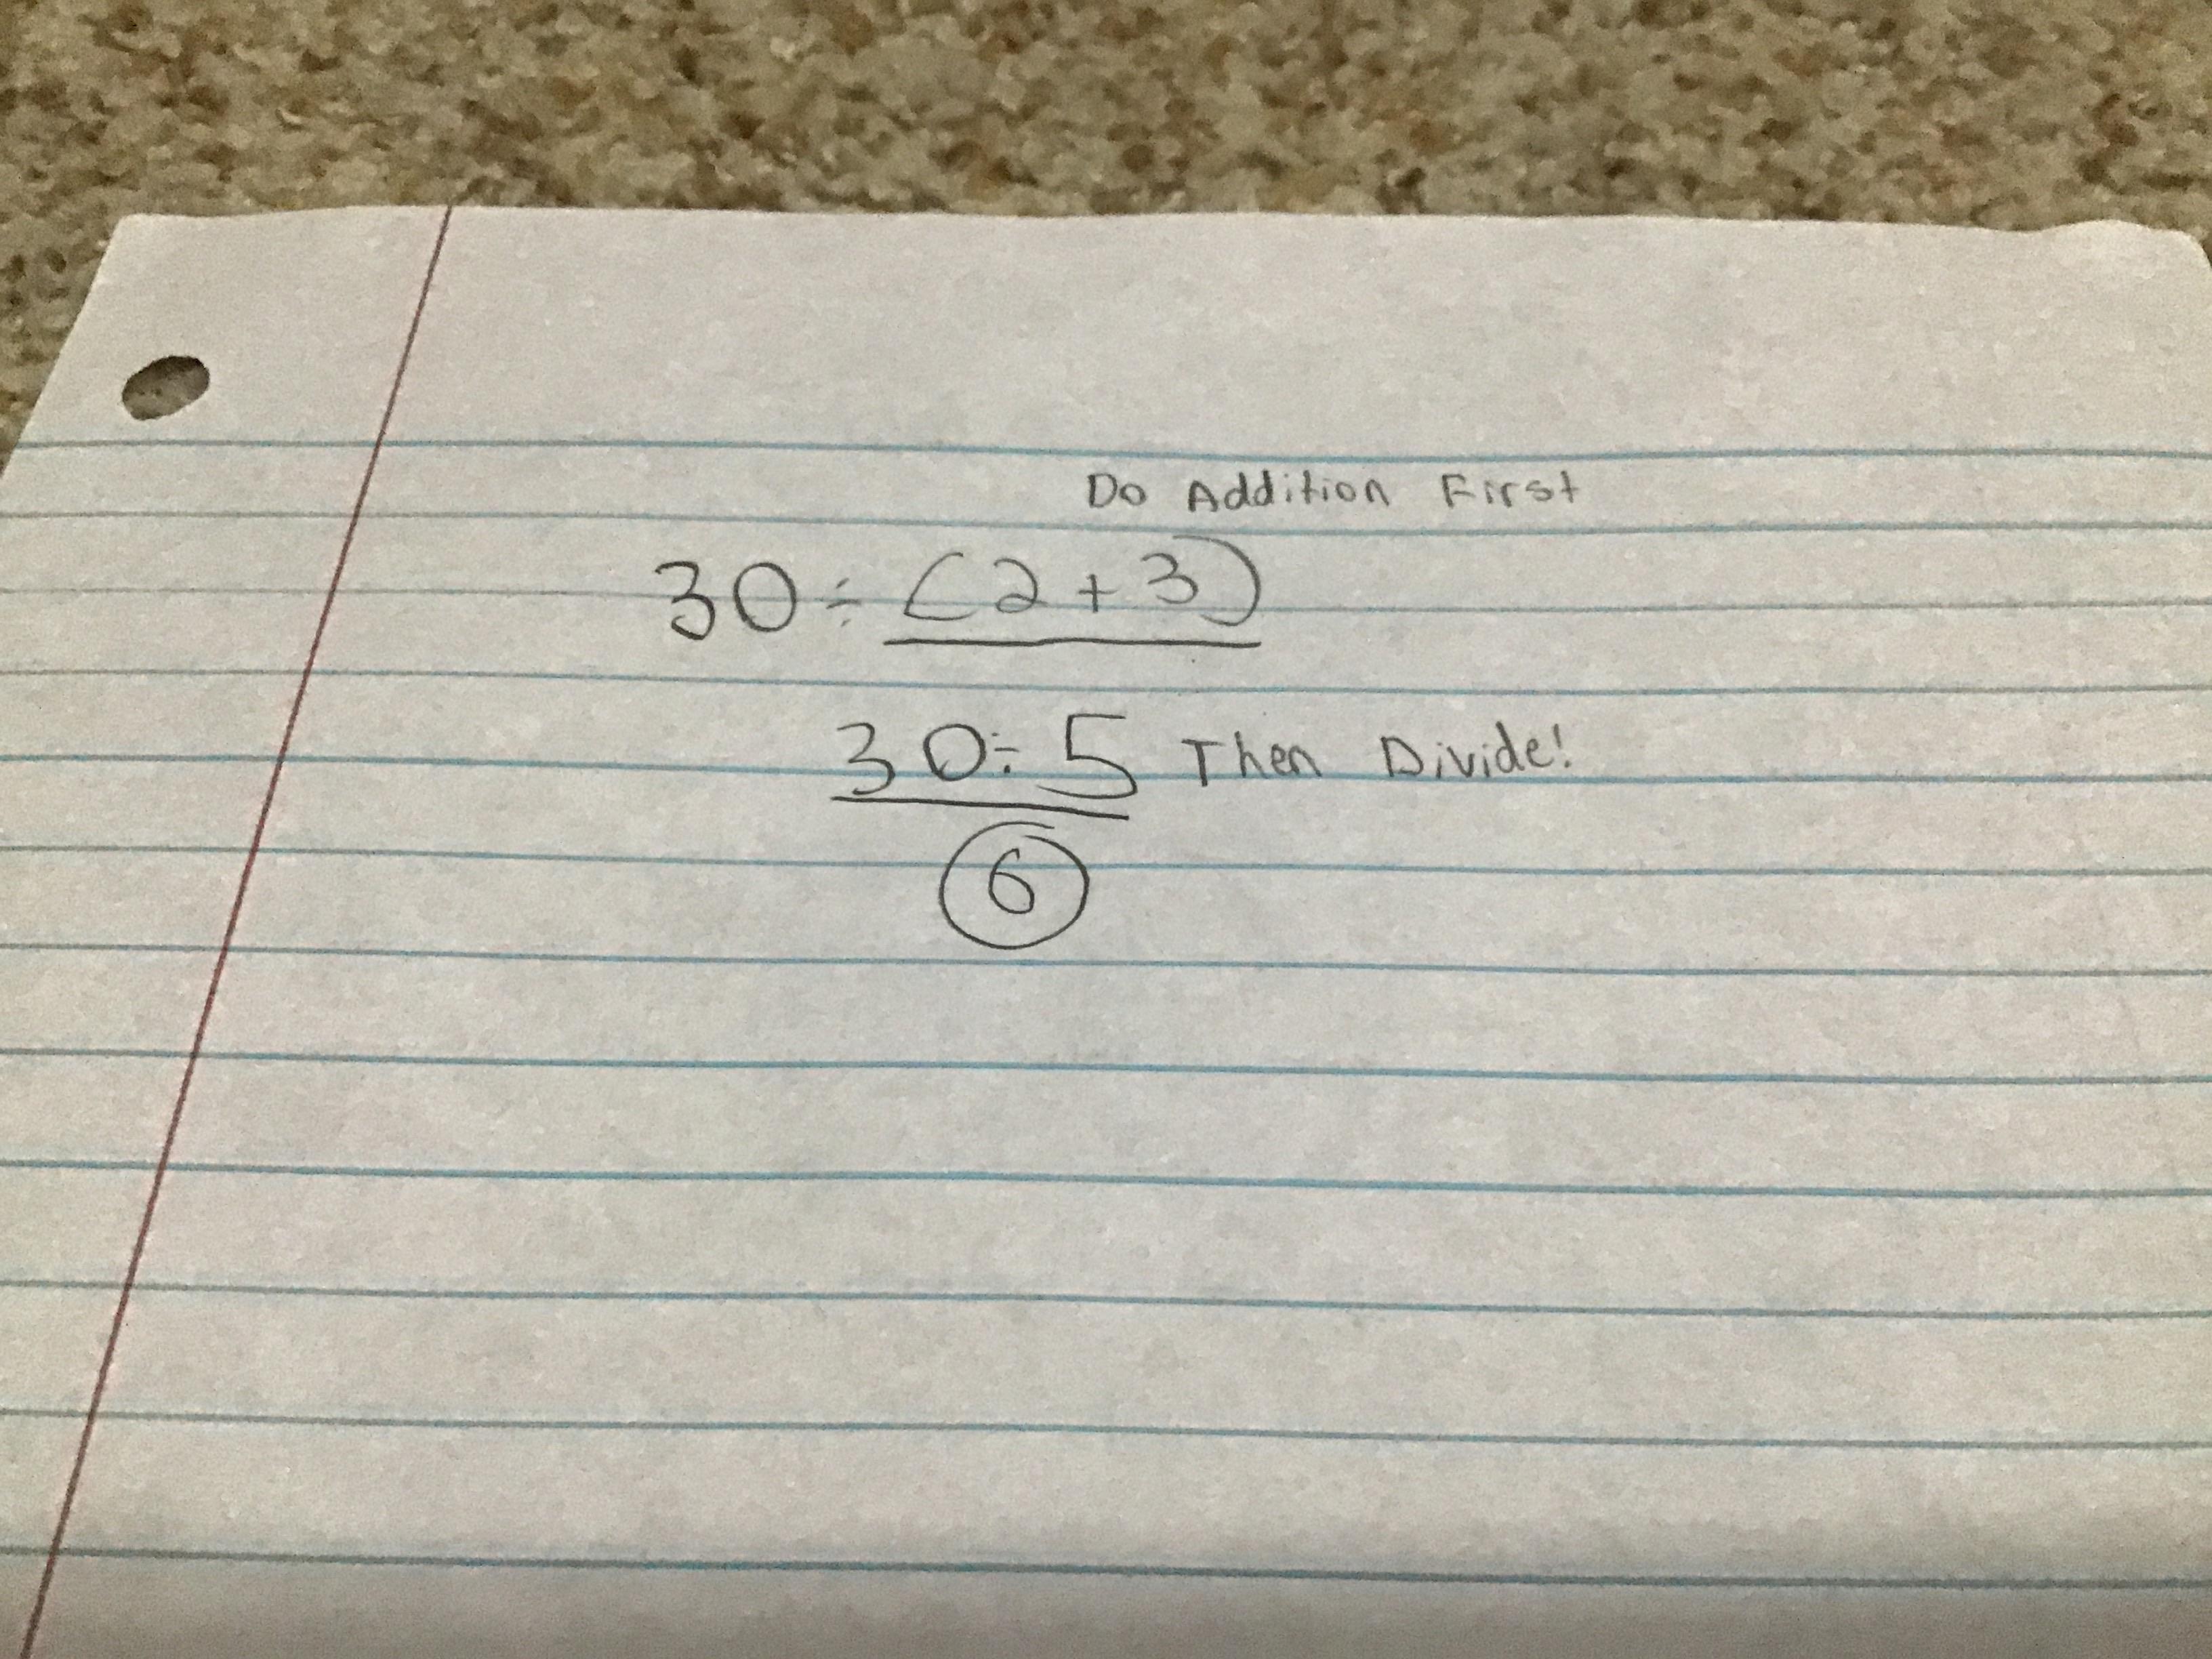 Do Addition First
30 ÷ (2 + 3)
30 ÷ 5 Then Divide!
6